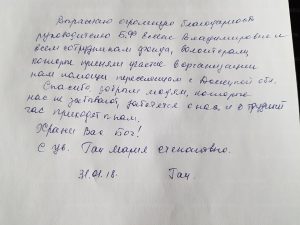 Выражаю огромную благодарность
руководителю БФ Елене Владимировне и
всем сотрудникам фонда, волонтерам,
которые приняли участие в организации
нам помощи переселенцам с Донецкой обл.
Спасибо добрым людям, которые
нас не забывают, заботятся о нас и в трудный
час приходят к нам.
Храни Вас Бог!
С ув. Гац Мария Степановна.
31.01.18. Гац.